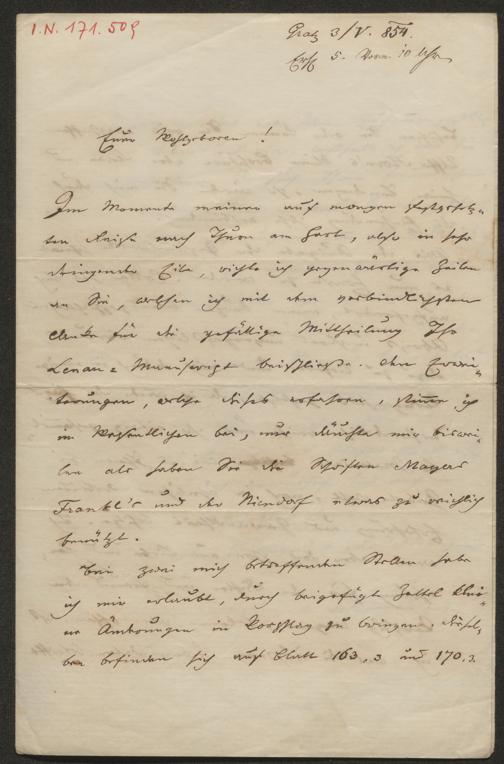 I.N. 171.509
Gratz 3/V. 854.
5. Vorm. 10 Uhr
Euer Wohlgeboren!
Im Momente meiner auf morgen festgesetz-
ten Reise nach Thurn am Hart, also in sehr
dringender Eile, richte ich gegenwärtige Zeilen
an Sie, welchen ich mit dem verbindlichsten
Danke für die gefällige Mittheilung Ihr
Lenau=Manuscript beischließe. Den Erwei-
terungen, welche dieses erfahren, stimme ich
im Wesentlichen bei, nur däuchte mir biswei-
len als haben Sie die Schriften Mayers
Frankl's und der Niendorf etwas zu reichlich
benützt.
Bei zwei mich betreffenden Stellen habe
ich mir erlaubt, durch beigefügte Zettel klei-
ne Änderungen in Vorschlag zu bringen. Diesel-
ben befinden sich auf Blatt 163,3 und 170,3.